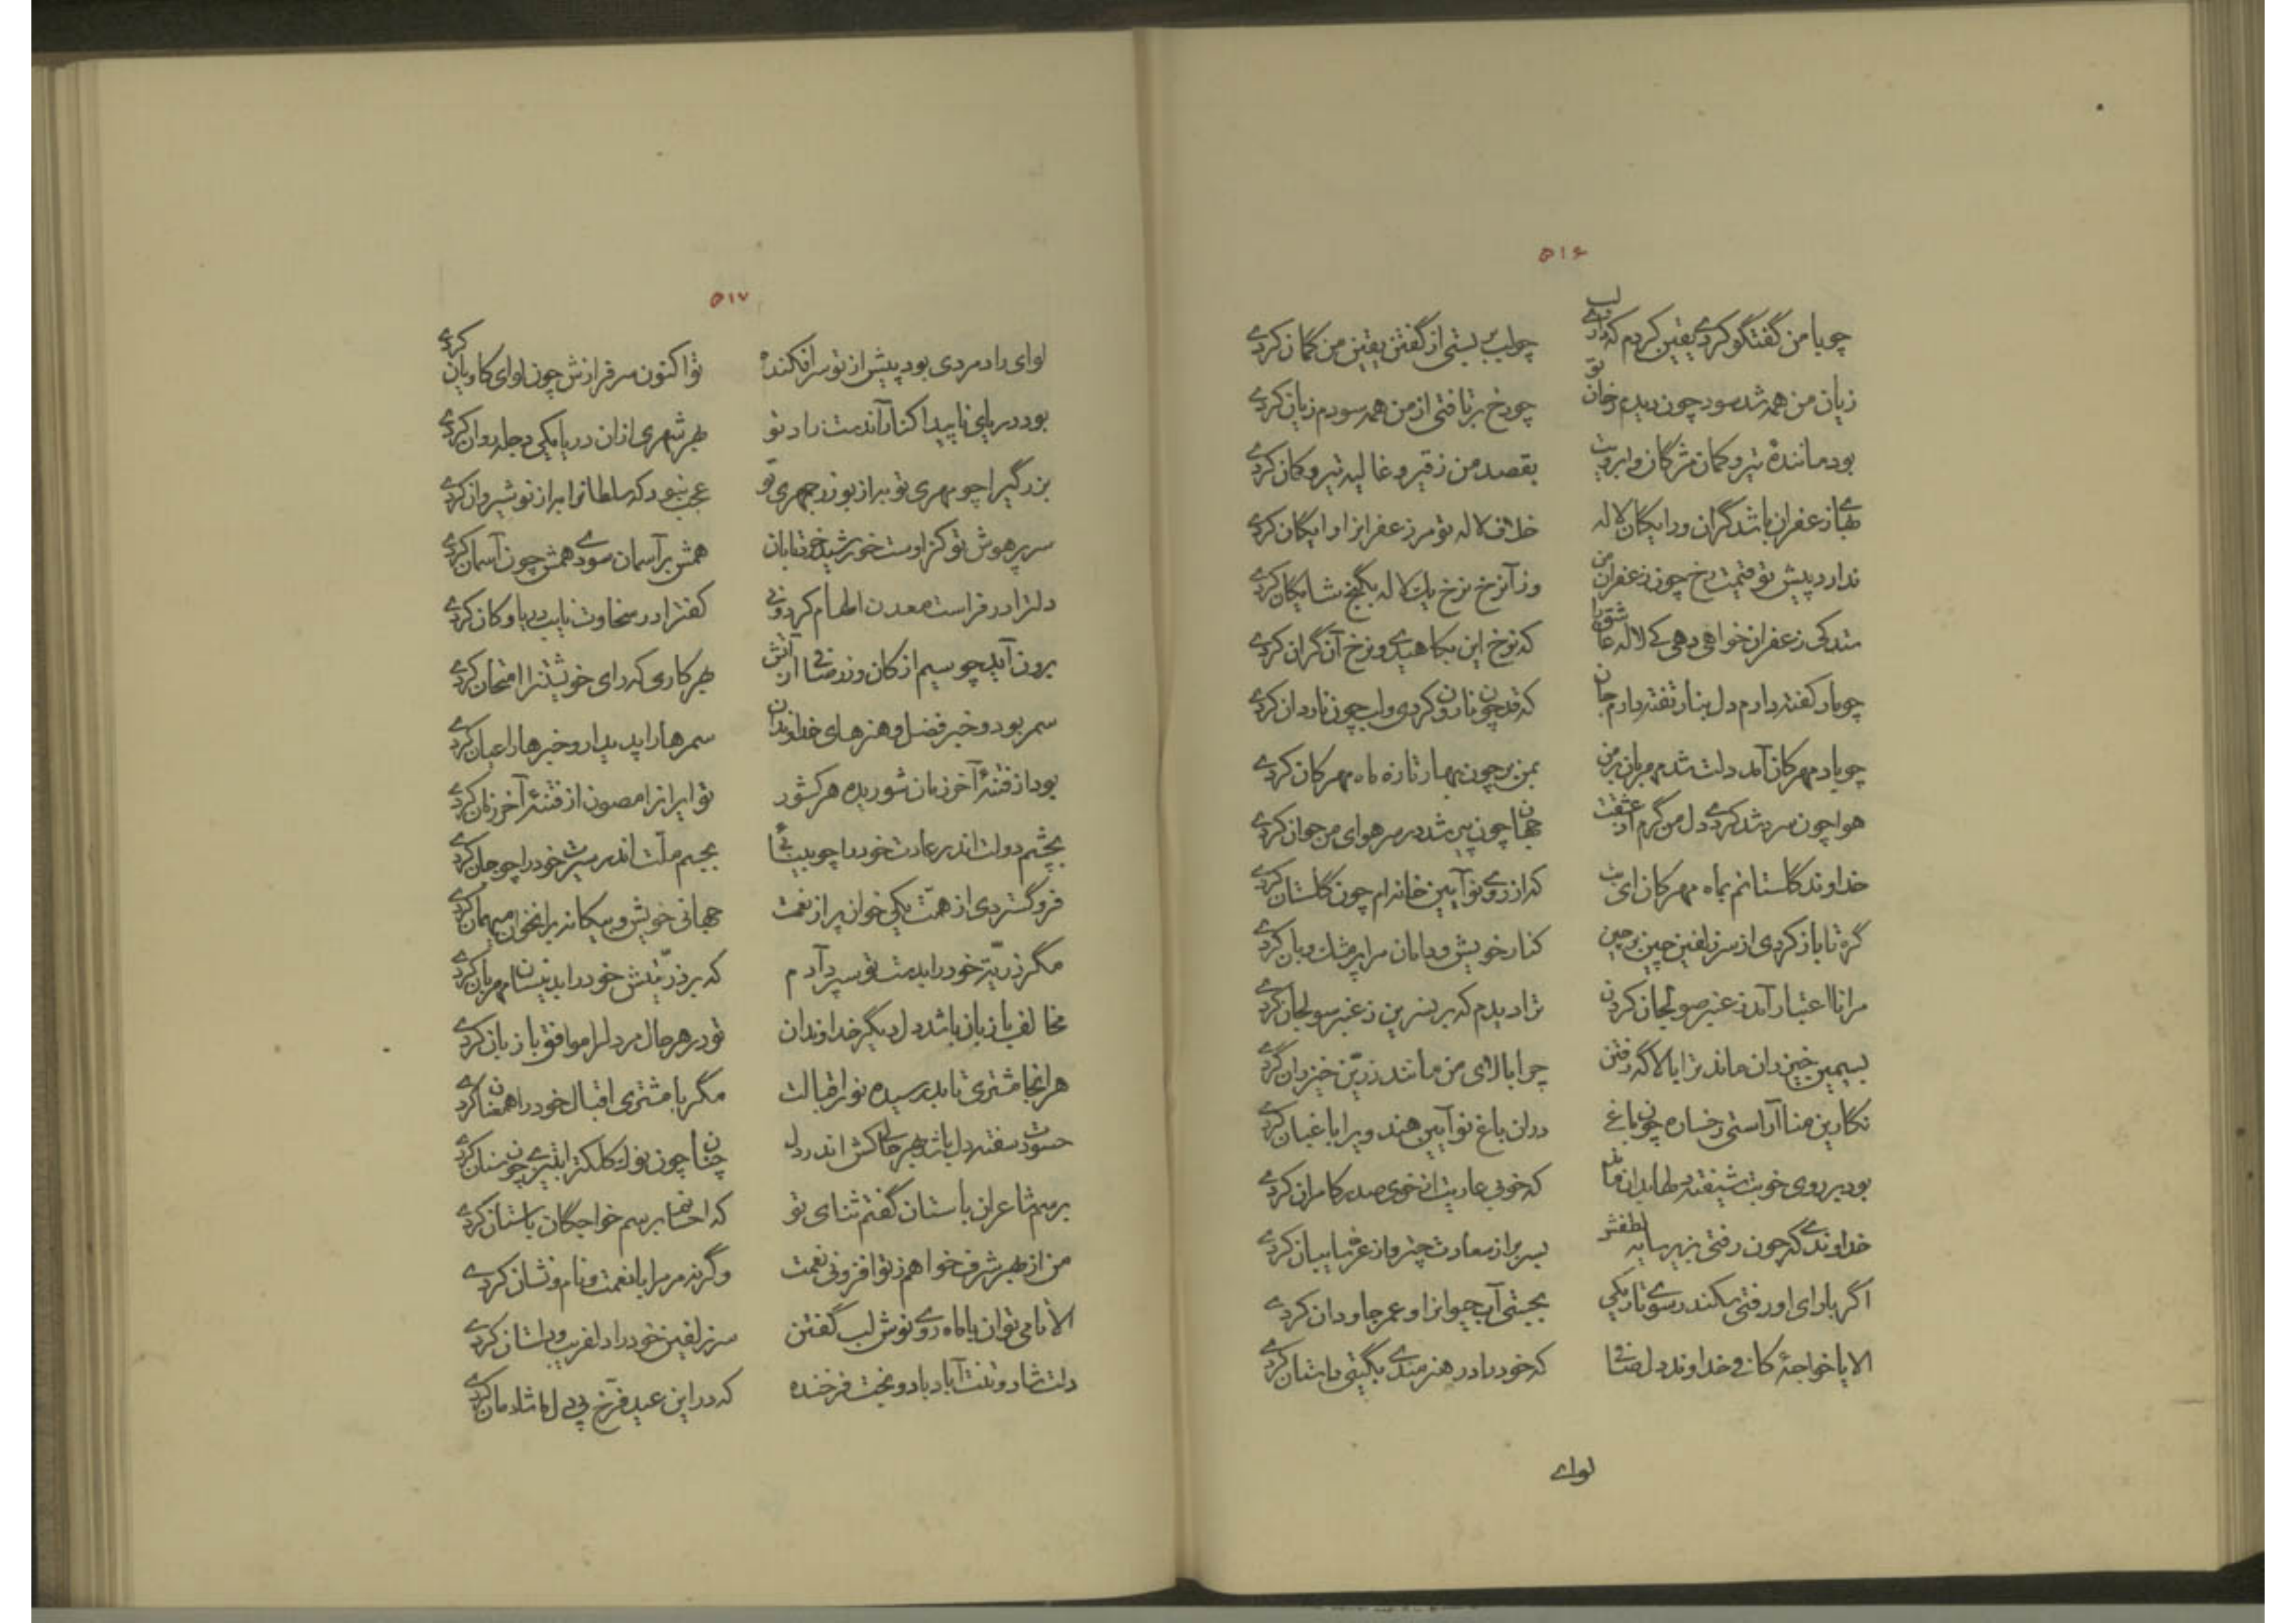 ۵۱۶
چو با من گفتگو کردے یقین کردم که دارے لب چو لب بر بستی از گفتن یقین من گمان کردے
زیان من همه شد سود چون دیدم رخان تو چو رخ بر تافتی از من همه سودم زیان کردے
بود مانندهٔ تیر و کمان مژگان و ابرویت بقصد من ز قیر و غالیه تیر و کمان کردے
بهاے زعفران باشد گران و رایگان لاله خلاف لاله تو مر زعفرانرا رایگان کردے
ندارد پیش تو قیمت رخ چون زعفران من وز آنرخ نرخ یک لاله بگنج شایگان کردے
ستد کی زعفران خواهی دهی کے لاله عاشق را که نرخ این بکاهیدے و نرخ آن گران کردے
چو نار کفته دارم دل بنار تفته دارم جان که قد چون نارون کردی و لب چون ناردان کردے
چو باد مهرکان آمد دلت شد مهربان بر من بمن بر چون بهار تازه ماه مهرکان کردے
هوا چون سرد شد کردے دل من گرم از عشقت جهان چون پیر شد در سر هوای من جوان کردے
خداوند گلستانم بماه مهرکان ای بت که از روے نو آیین خانه‌ام چون گلستان کردے
گره تا باز کردی از سر زلفین چین بر چین کنار خویش و دامان مرا پر مشک و بان کردے
مرانا اعتبار آمد ز عنبر صولجان کردن ترا دیدم که بر نسرین ز عنبر صولجان کردے
بسیمین خیزران ماند ترا بالا گه رفتن چرا بالای من مانند زرّین خیزران کردے
نگارین منا آراستی رخساره چون باغ در ان باغ نو آیین هندویرا باغبان کردے
بود بر روی خوبت شیفته دلها بدان ماند که خوبی عاریت از خوی صدر کامران کردے
خداوندے که چون رفتی بزیر سایه لطفش بسر بر از سعادت چتر و از عز سایبان کردے
اگر با رای او رفتی سکندر سوے تاریکی بجستی آب حیوانرا و عمر جاودان کردے
الا یا خواجهٔ کافی خداوند دل صافی که خود را در هنرمندے بگیتی داستان کردے
لواے
۵۱۷
لوای راد مردی بود پیش از تو سرافکنده تو اکنون سرفرازش چون لوای کاویان کردے
بود دریای ناپیدا کنار آندست راد تو بهر شهری ازان دریا یکی دجله روان کردے
بزرگیرا چو مهری تو برای بوزرجمهری تو عجب نبود که سلطانرا براز نوشیروان کردے
سریر هوش تو کز اوست خورشید خرد تابان همش بر آسمان سودے همش چون آسمان کردے
دلترا در فراست معدن الهام کردونی کفترا در سخاوت نایب دریا و کان کردے
برون آید چو سیم از کان و زر صافی از آتش بهر کاری که رای خویشتنرا امتحان کردے
سمر بود و خبر فضل و هنرهای خداوندان سمرها را پدیدار و خبرها را عیان کردے
بود از فتنهٔ آخر زمان شوریده هر کشور تو ایرانرا مصون از فتنهٔ آخر زمان کردے
بچشم دولت اندر عادت خود را چو بینائی بجسم ملّت اندر سیرت خود را چو جان کردے
فرو گستردی از همّت یکی خوان پر از نعمت جهانی خویش و بیگانه بر انخوان میهمان کردے
مگر ذریّه خود را بدست تو سپرد آدم که بر ذریّتش خود را بدینسان مهربان کردے
مخالف با زبان باشد دل دیگر خداوندان تو در هر حال مر دلرا موافق با زبان کردے
هر انجا مشتری تابد رسیده نور اقبالت مگر با مشتری اقبال خود را همعنان کردے
حسودت سفته دل باشد بهر جائی کش اندر دل چنان چون نوک کلکترا بتیزے چون سنان کردے
برسم شاعران باستان گفتم ثنای تو که احسانها برسم خواجگان باستان کردے
من از بهر شرف خواهم ز تو افزونی نعمت وگرنه مر مرا با نعمت و نام و نشان کردے
الا تا می توان با ماه روے نوش لب گفتن سر زلفین خود را دلفریب و دلستان کردے
دلت شاد و تنت آباد باد و بخت فرخنده که در این عید فرّخ پے دل ما شادمان کردے